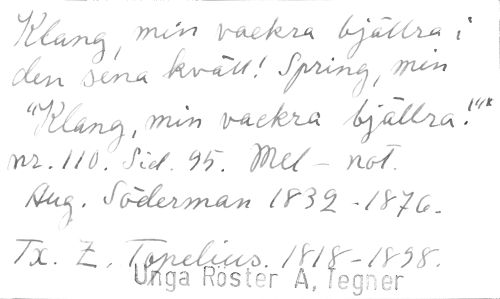 Klang, min vackra bjällra i
den sena kväll! Spring, min
"Klang, min vackra bjällra!"
nr. 110. Sid. 95. Mel - not.
Aug. Söderman 1832 - 1876.
Tx. Z. Topelius. 1818-1898.
Unga Röster A. Tegner